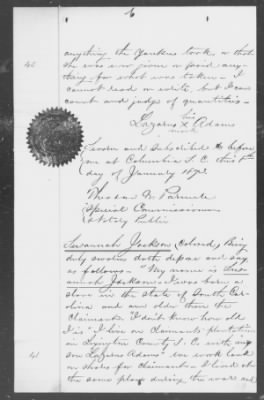 6
anything the Yankees took or that
she was ever given or paid any-
40 thing for what was taken - I
cannot read or write, but I can
count and judge of quantities -
his
Lazarus X Adams
mark
Sworn and subscribed to before
me at Columbia S. C. this
day of January 1872
Special Commissioner
& Notary Public
Susannah Jackson (Colored) being
duly sworn doth depose and say
as follows - "My name is Susan-
nah Jackson I was born a
slave in the State of South Car-
olina and am older than the
Claimant I don't know how old
I is - I live on claimants plantation
in Lexington County S. C. with my
41 son Lazarus Adams
or shoes for claimant - I lived at
the same place during the war and